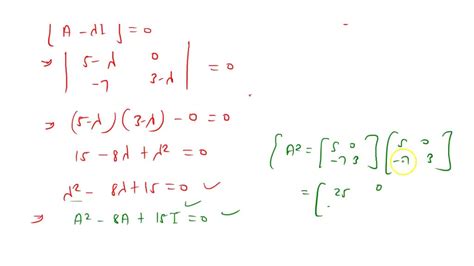 | A - λI | = 0
⇒ | 5-λ 0 |
| -7 3-λ | = 0
⇒ (5-λ)(3-λ) - 0 = 0
15 - 8λ + λ² = 0
λ² - 8λ + 15 = 0 ✓
⇒ A² - 8A + 15I = 0 ✓
{ A² = [ 5 0 ] [ 5 0 ]
[ -7 3 ] [ -7 3 ]
= [ 25 0